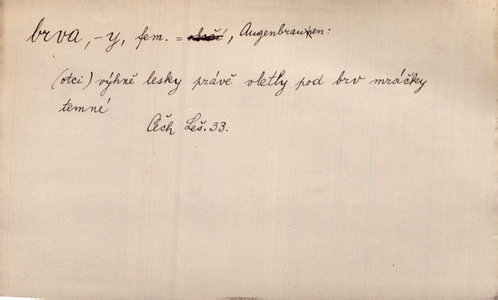 brva, -y, fem. = , Augenbrauen:
(otci) výhně lesky právě vletly pod brv mráčky
temné
Čech Leš. 33.